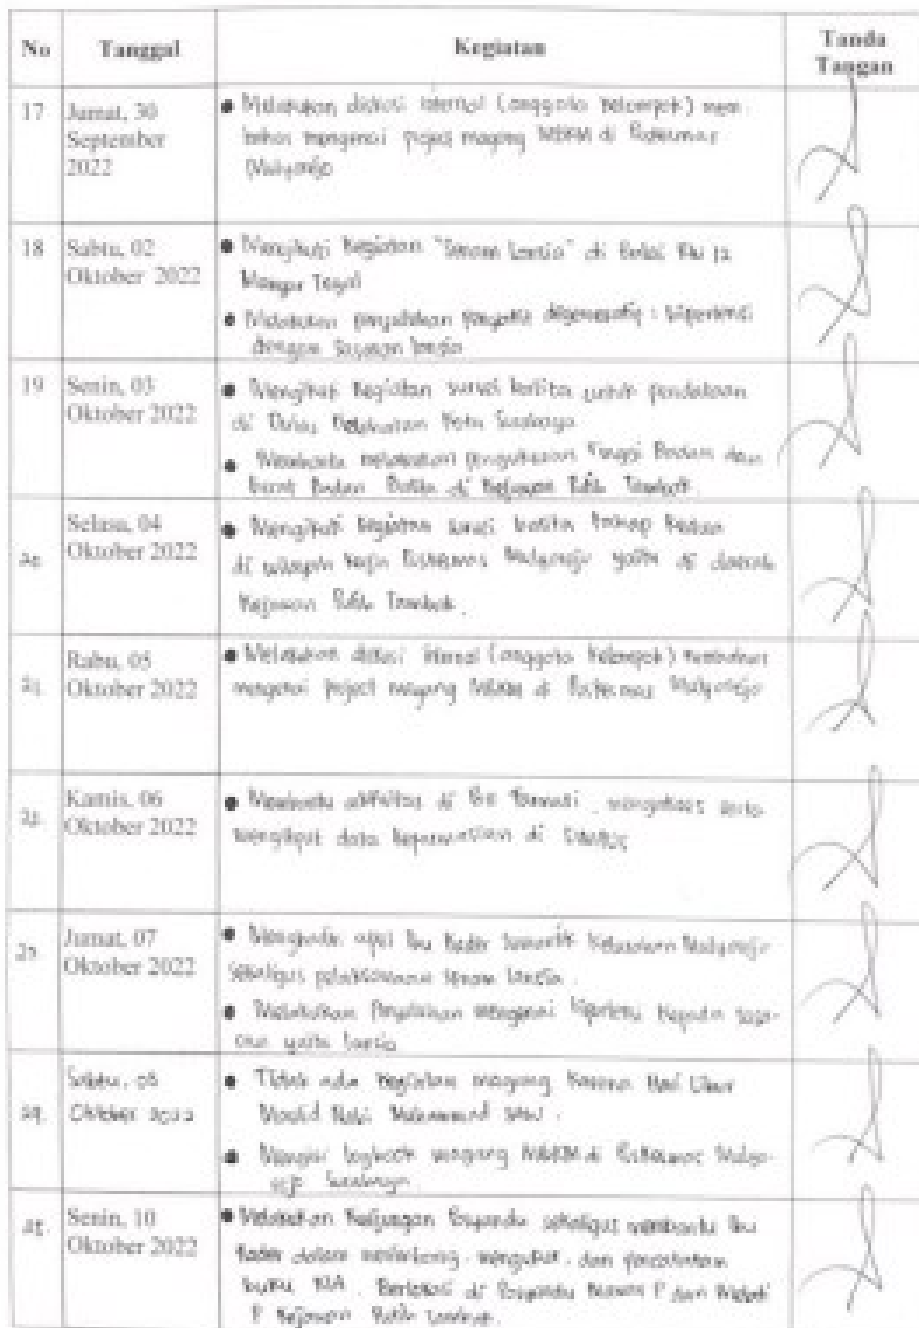 No Tanggal Kegiatan Tanda Tangan
17 Jumat, 30 September 2022
• Melakukan diskusi internal (anggota kelompok) mem-
bahas mengenai project magang MBKM di Puskesmas
Mulyorejo
18 Sabtu, 02 Oktober 2022
• Mengikuti kegiatan "Senam Lansia" di Balai RW 12
Tegal
• Melakukan penyuluhan penyakit degeneratif : hipertensi
dengan sasaran lansia
19 Senin, 03 Oktober 2022
• Mengikuti kegiatan survei balita untuk pendataan
di Dinas Kesehatan Kota Surabaya
• Membantu melakukan pengukuran Tinggi Badan dan
Berat Badan Balita di Kejawan Putih Tambak.
20 Selasa, 04 Oktober 2022
• Mengikuti kegiatan survei balita tahap kedua
di wilayah kerja Puskesmas Mulyorejo yaitu di daerah
Kejawan Putih Tambak.
21. Rabu, 05 Oktober 2022
• Melakukan diskusi internal (anggota kelompok) membahas
mengenai project magang MBKM di Puskesmas Mulyorejo
22. Kamis, 06 Oktober 2022
• Membantu aktivitas di farmasi, serta
data di
23. Jumat, 07 Oktober 2022
• Menghadiri apel Ibu Kader Kelurahan Mulyorejo
sekaligus pelaksanaan senam lansia.
• Melakukan penyuluhan mengenai hipertensi kepada sasa-
ran yaitu lansia
24. Sabtu, 08 Oktober 2022
• Tidak ada kegiatan magang karena Hari Libur
Maulid Nabi Muhammad SAW.
• Mengisi logbook magang MBKM di Puskesmas Mulyo-
rejo Surabaya.
25. Senin, 10 Oktober 2022
• Melakukan kunjungan Posyandu sekaligus membantu Ibu
Kader dalam menimbang, mengukur, dan pencatatan
buku KIA. Berlokasi di Posyandu dan
Kejawan Putih Tambak.